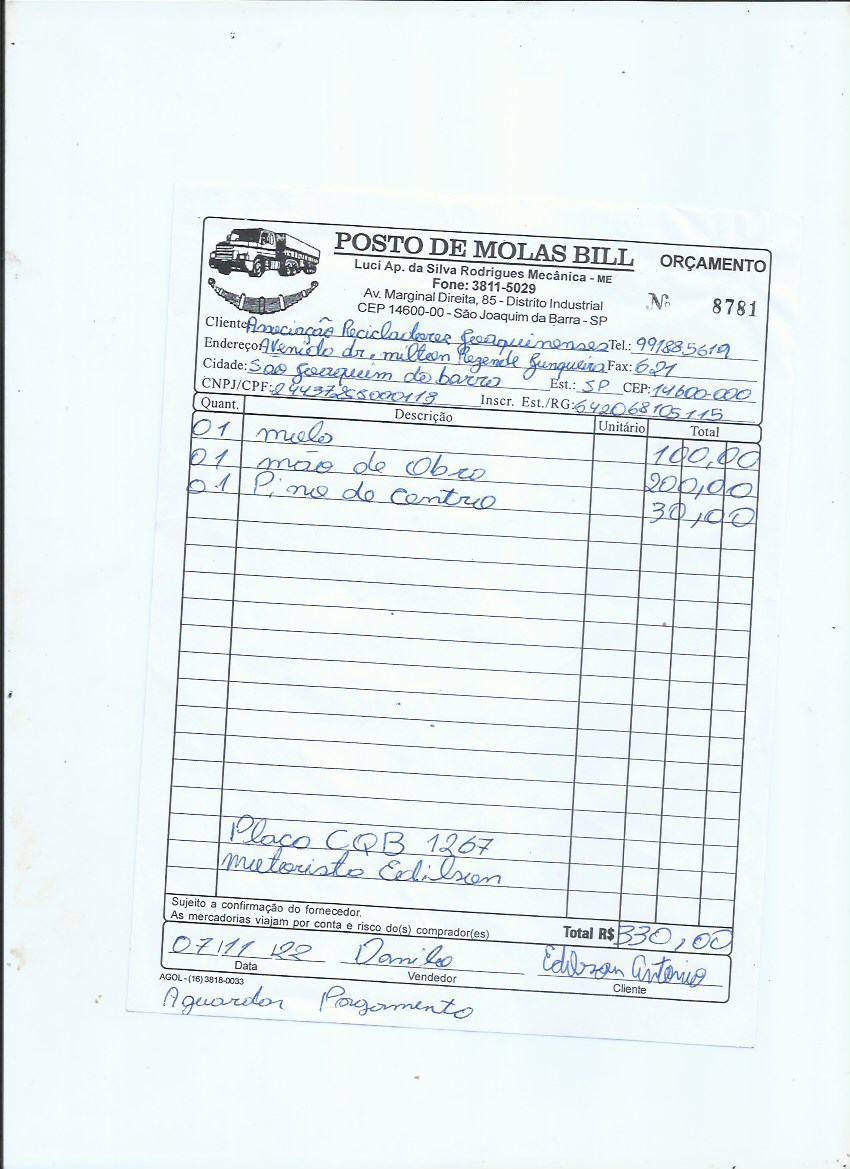 POSTO DE MOLAS BILL
ORÇAMENTO
Luci Ap. da Silva Rodrigues Mecânica - ME
Fone: 3811-5029
Av. Marginal Direita, 85 - Distrito Industrial
CEP 14600-00 - São Joaquim da Barra - SP
Nº 8781
Cliente Associação Recicladores Joaquinenses Tel.: 991885619
Endereço: Avenida dr. milton Rezende Junqueira Fax: 621
Cidade: Sao Joaquim da barra Est.: SP CEP: 14600-000
CNPJ/CPF: 24437255000113 Inscr. Est./RG: 642068105115
Quant. Descrição Unitário Total
01 mola 100,00
01 mão de Obra 200,00
01 Pino de centro 30,00
Placa CQB 1267
motorista Edilson
Sujeito a confirmação do fornecedor.
As mercadorias viajam por conta e risco do(s) comprador(es)
Total R$ 330,00
07/11/22 Danilo Edilson Antonio
Data Vendedor Cliente
AGOL - (16) 3818-0033
Aguardar Pagamento